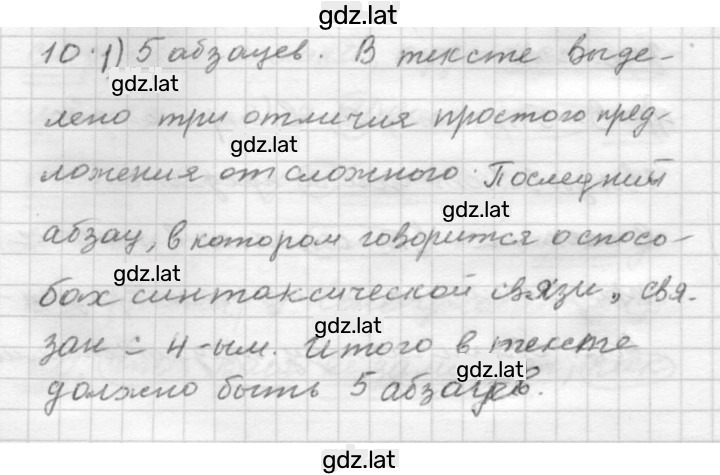 gdz.lat
10.1) 5 абзацев. В тексте выде-
gdz.lat
лено три отличия простого пред-
gdz.lat
ложения от сложного. Последний
gdz.lat
абзац, в котором говорится о спосо-
gdz.lat
бах синтаксической связи, свя-
gdz.lat
зан с 4-ым. Итого в тексте
gdz.lat
должно быть 5 абзацев.
gdz.lat
gdz.lat